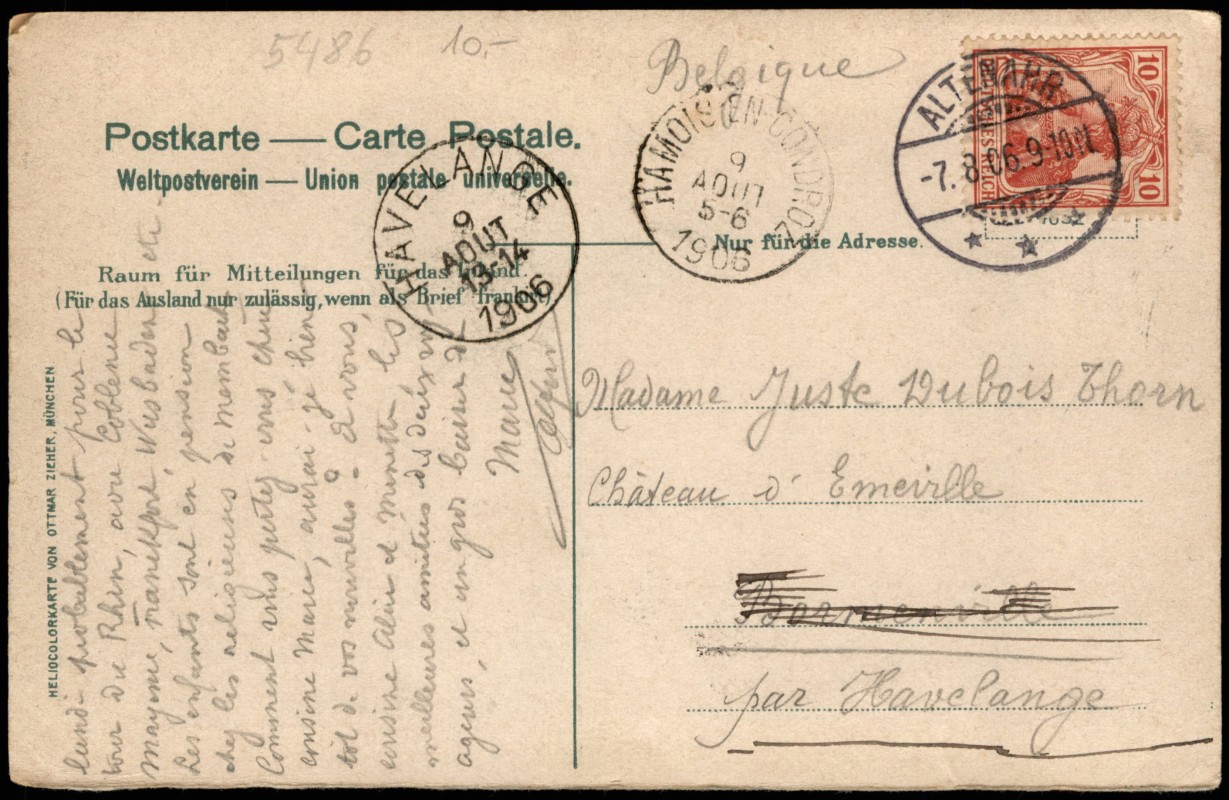 5486 10.-
Belgique
Postkarte — Carte Postale.
Weltpostverein — Union postale universelle.
Raum für Mitteilungen für das Inland.
(Für das Ausland nur zulässig, wenn als Brief frankirt)
Nur für die Adresse.
HAVELANGE
9
AOUT
13-14
1906
HAMOIS (EN CONDROZ)
9
AOUT
5-6
1906
ALTENAHR
-7.8.06.9-10N.
10 10
DEUTSCHES REICH
HELIOCOLORKARTE VON OTTMAR ZIEHER, MÜNCHEN
Madame Juste Dubois Thorn
Château d'Emeville
Bormenville
par Havelange
lundi probablement pour le
tour du Rhin, avec Coblence
Mayence, Francfort, Wiesbaden etc -
Les enfants sont en pension
chez les religieuses de
Comment vous portez vous chère
cousine Marie, aurai-je bien
tôt de vos nouvelles - à vous,
cousine Aline et Minette, les
meilleures amitiés des deux
et un gros baiser de
Marie